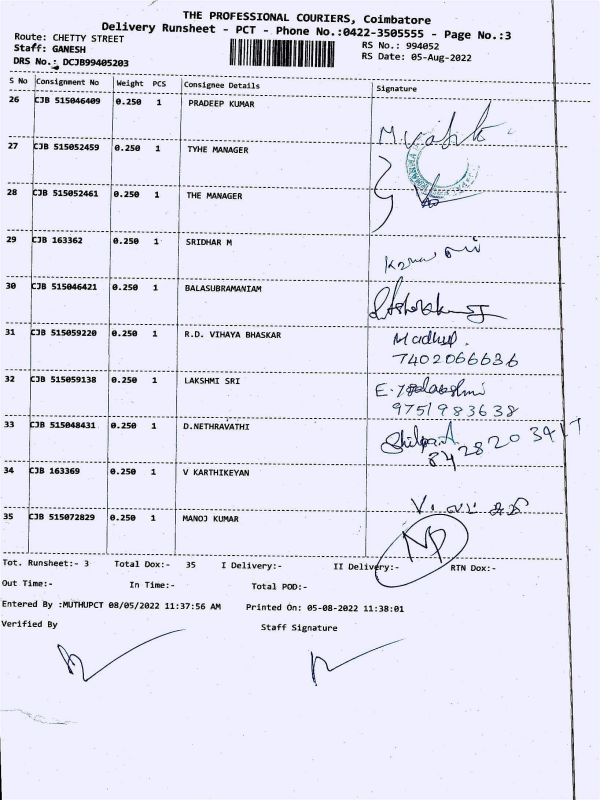 THE PROFESSIONAL COURIERS, Coimbatore
Delivery Runsheet - PCT - Phone No.:0422-3505555 - Page No.:3
Route: CHETTY STREET
RS No.: 994052
Staff: GANESH
RS Date: 05-Aug-2022
DRS No.: DCJB99405203
S No Consignment No Weight PCS Consignee Details Signature
26 CJB 515046409 0.250 1 PRADEEP KUMAR
27 CJB 515052459 0.250 1 TYHE MANAGER
28 CJB 515052461 0.250 1 THE MANAGER
29 CJB 163362 0.250 1 SRIDHAR M
30 CJB 515046421 0.250 1 BALASUBRAMANIAM
31 CJB 515059220 0.250 1 R.D. VIHAYA BHASKAR
7402066636
32 CJB 515059138 0.250 1 LAKSHMI SRI
9751983638
33 CJB 515048431 0.250 1 D.NETHRAVATHI
34 CJB 163369 0.250 1 V KARTHIKEYAN
35 CJB 515072829 0.250 1 MANOJ KUMAR
NP
Tot. Runsheet:- 3 Total Dox:- 35 I Delivery:- II Delivery:- RTN Dox:-
Out Time:- In Time:- Total POD:-
Entered By :MUTHUPCT 08/05/2022 11:37:56 AM Printed On: 05-08-2022 11:38:01
Verified By Staff Signature